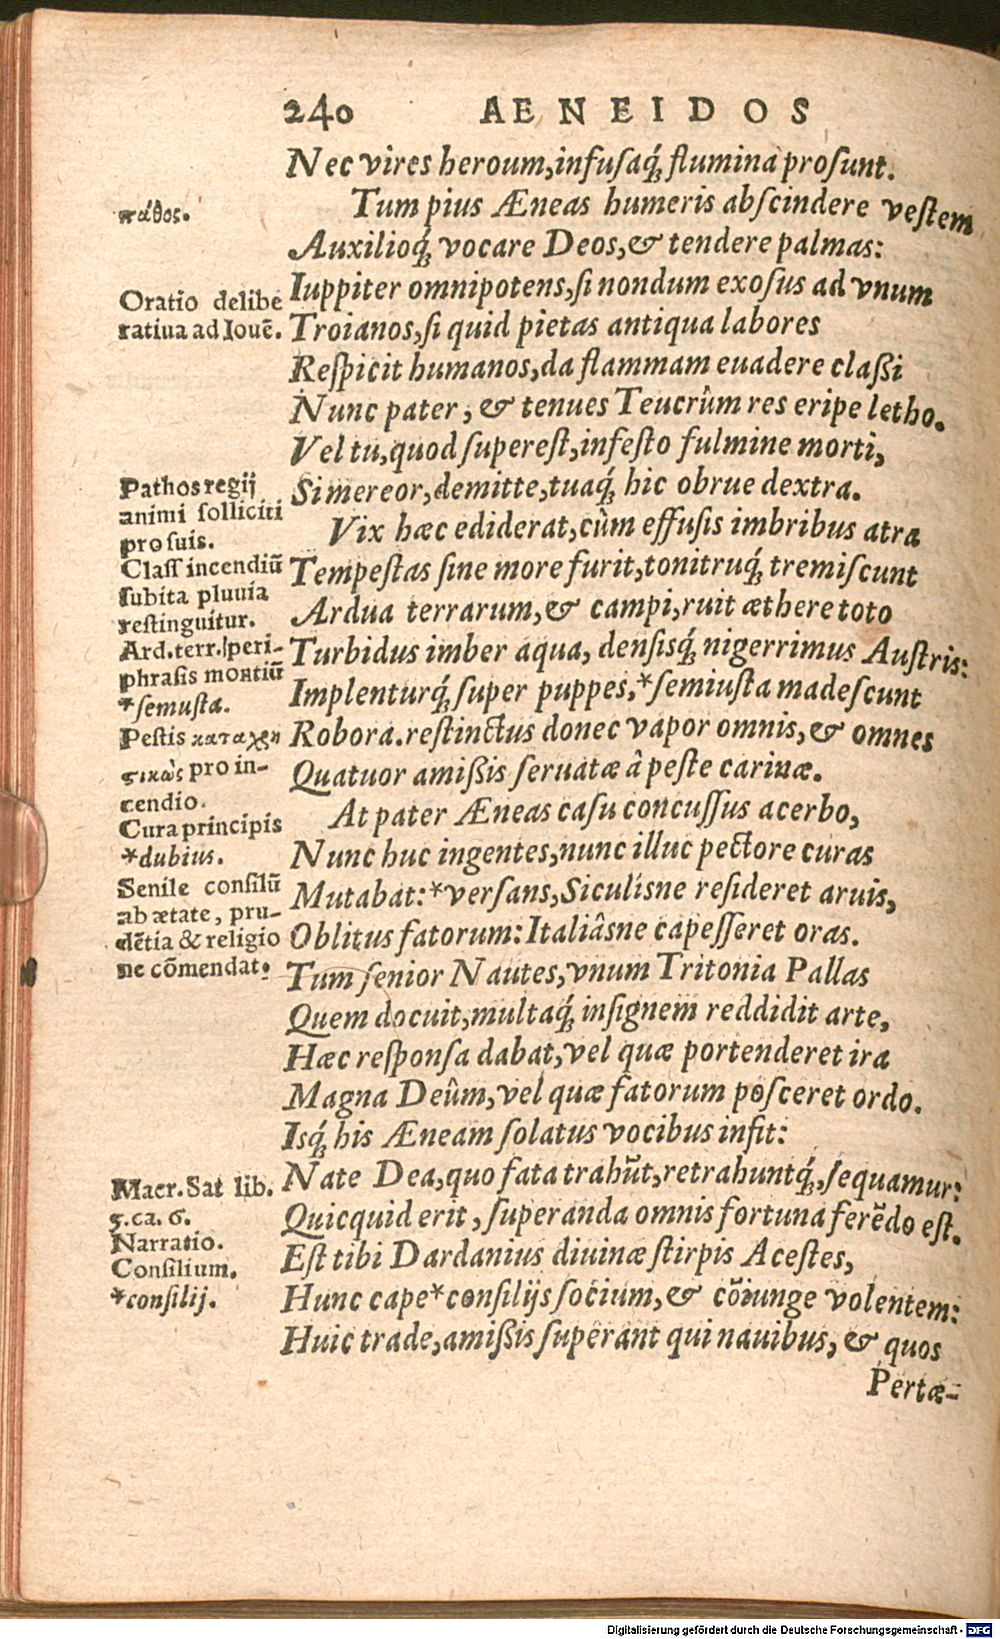 240 AENEIDOS
Nec vires heroum, infusaq́; flumina prosunt.
Tum pius Æneas humeris abscindere vestem
Auxilioq́; vocare Deos, & tendere palmas:
Iuppiter omnipotens, si nondum exosus ad vnum
Troianos, si quid pietas antiqua labores
Respicit humanos, da flammam euadere claßi
Nunc pater, & tenues Teucrûm res eripe letho.
Vel tu, quod superest, infesto fulmine morti,
Si mereor, demitte, tuaq́; hic obrue dextra.
Vix hæc ediderat, cùm effusis imbribus atra
Tempestas sine more furit, tonitruq́; tremiscunt
Ardua terrarum, & campi, ruit æthere toto
Turbidus imber aqua, densisq́; nigerrimus Austris:
Implenturq́; super puppes, *semiusta madescunt
Robora. restinctus donec vapor omnis, & omnes
Quatuor amißis seruatæ à peste carinæ.
At pater Æneas casu concussus acerbo,
Nunc huc ingentes, nunc illuc pectore curas
Mutabat: *versans, Siculisne resideret aruis,
Oblitus fatorum: Italiâsne capesseret oras.
Tum senior Nautes, vnum Tritonia Pallas
Quem docuit, multaq́; insignem reddidit arte,
Hæc responsa dabat, vel quæ portenderet ira
Magna Deûm, vel quæ fatorum posceret ordo.
Isq́; his Æneam solatus vocibus infit:
Nate Dea, quo fata trahūt, retrahuntq́;, sequamur:
Quicquid erit, superanda omnis fortuna ferēdo est.
Est tibi Dardanius diuinæ stirpis Acestes,
Hunc cape *consilijs socium, & cōiunge volentem:
Huic trade, amißis superant qui nauibus, & quos
Pertæ-
πάθος.
Oratio delibe
ratiua ad Iouē.
Pathos regij
animi solliciti
pro suis.
Class incendiū
subita pluuia
restinguitur.
Ard. terr. peri-
phrasis montiū
*semusta.
Pestis καταχρη
ςικῶς pro in-
cendio.
Cura principis
*dubius.
Senile consiliū
ab ætate, pru-
dētia & religio
ne cōmendat.
Macr. Sat lib.
5. ca. 6.
Narratio.
Consilium.
*consilij.
Digitalisierung gefördert durch die Deutsche Forschungsgemeinschaft - DFG